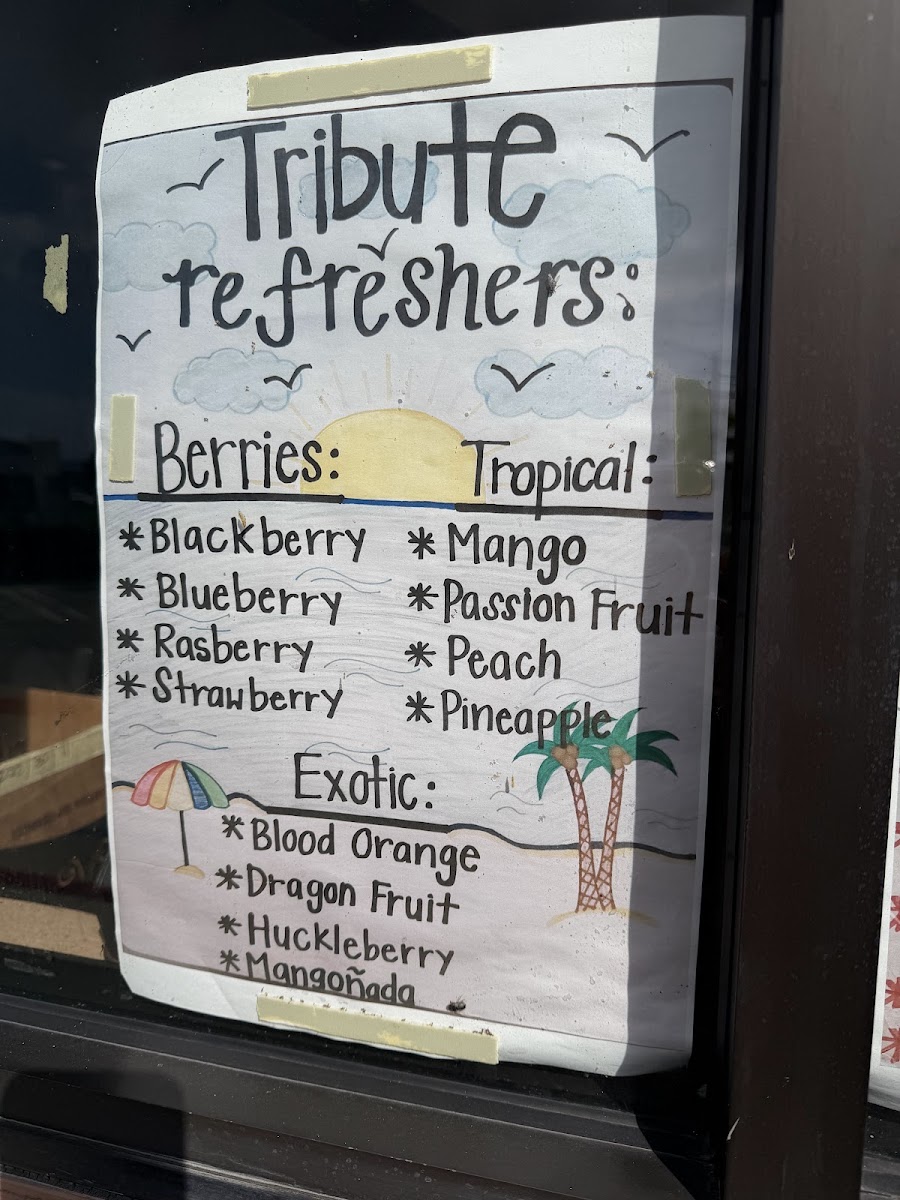 Tribute
refreshers:
Berries:
* Blackberry
* Blueberry
* Rasberry
* Strawberry
Tropical:
* Mango
* Passion Fruit
* Peach
* Pineapple
Exotic:
* Blood Orange
* Dragon Fruit
* Huckleberry
* Mangoñada